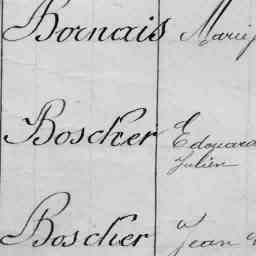 Bornais Marie
Boscher Edouard
Julien
Boscher Jean